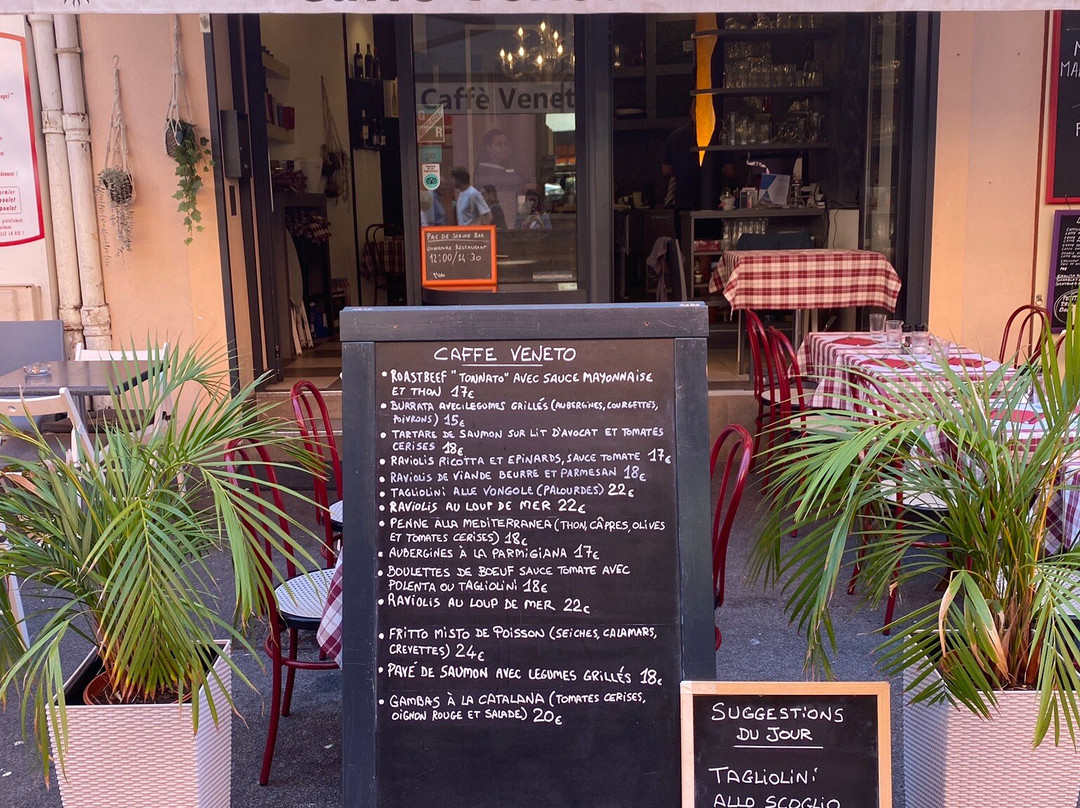 Caffè Veneto
PAS DE SERVICE BAR
OUVERTURE RESTAURANT
12:00/14 30
CAFFE VENETO
• ROASTBEEF "TONNATO" AVEC SAUCE MAYONNAISE
ET THON 17€
• BURRATA AVEC LEGUMES GRILLÉS (AUBERGINES, COURGETTES,
POIVRONS) 15€
• TARTARE DE SAUMON SUR LIT D'AVOCAT ET TOMATES
CERISES 18€
• RAVIOLIS RICOTTA ET EPINARDS, SAUCE TOMATE 17€
• RAVIOLIS DE VIANDE BEURRE ET PARMESAN 18€
• TAGLIOLINI ALLE VONGOLE (PALOURDES) 22€
• RAVIOLIS AU LOUP DE MER 22€
• PENNE ALLA MEDITERRANEA (THON, CÂPRES, OLIVES
ET TOMATES CERISES) 18€
• AUBERGINES À LA PARMIGIANA 17€
• BOULETTES DE BOEUF SAUCE TOMATE AVEC
POLENTA OU TAGLIOLINI 18€
• RAVIOLIS AU LOUP DE MER 22€
• FRITTO MISTO DE POISSON (SEICHES, CALAMARS,
CREVETTES) 24€
• PAVÉ DE SAUMON AVEC LEGUMES GRILLÉS 18€
• GAMBAS À LA CATALANA (TOMATES CERISES,
OIGNON ROUGE ET SALADE) 20€
SUGGESTIONS
DU JOUR
TAGLIOLINI
ALLO SCOGLIO